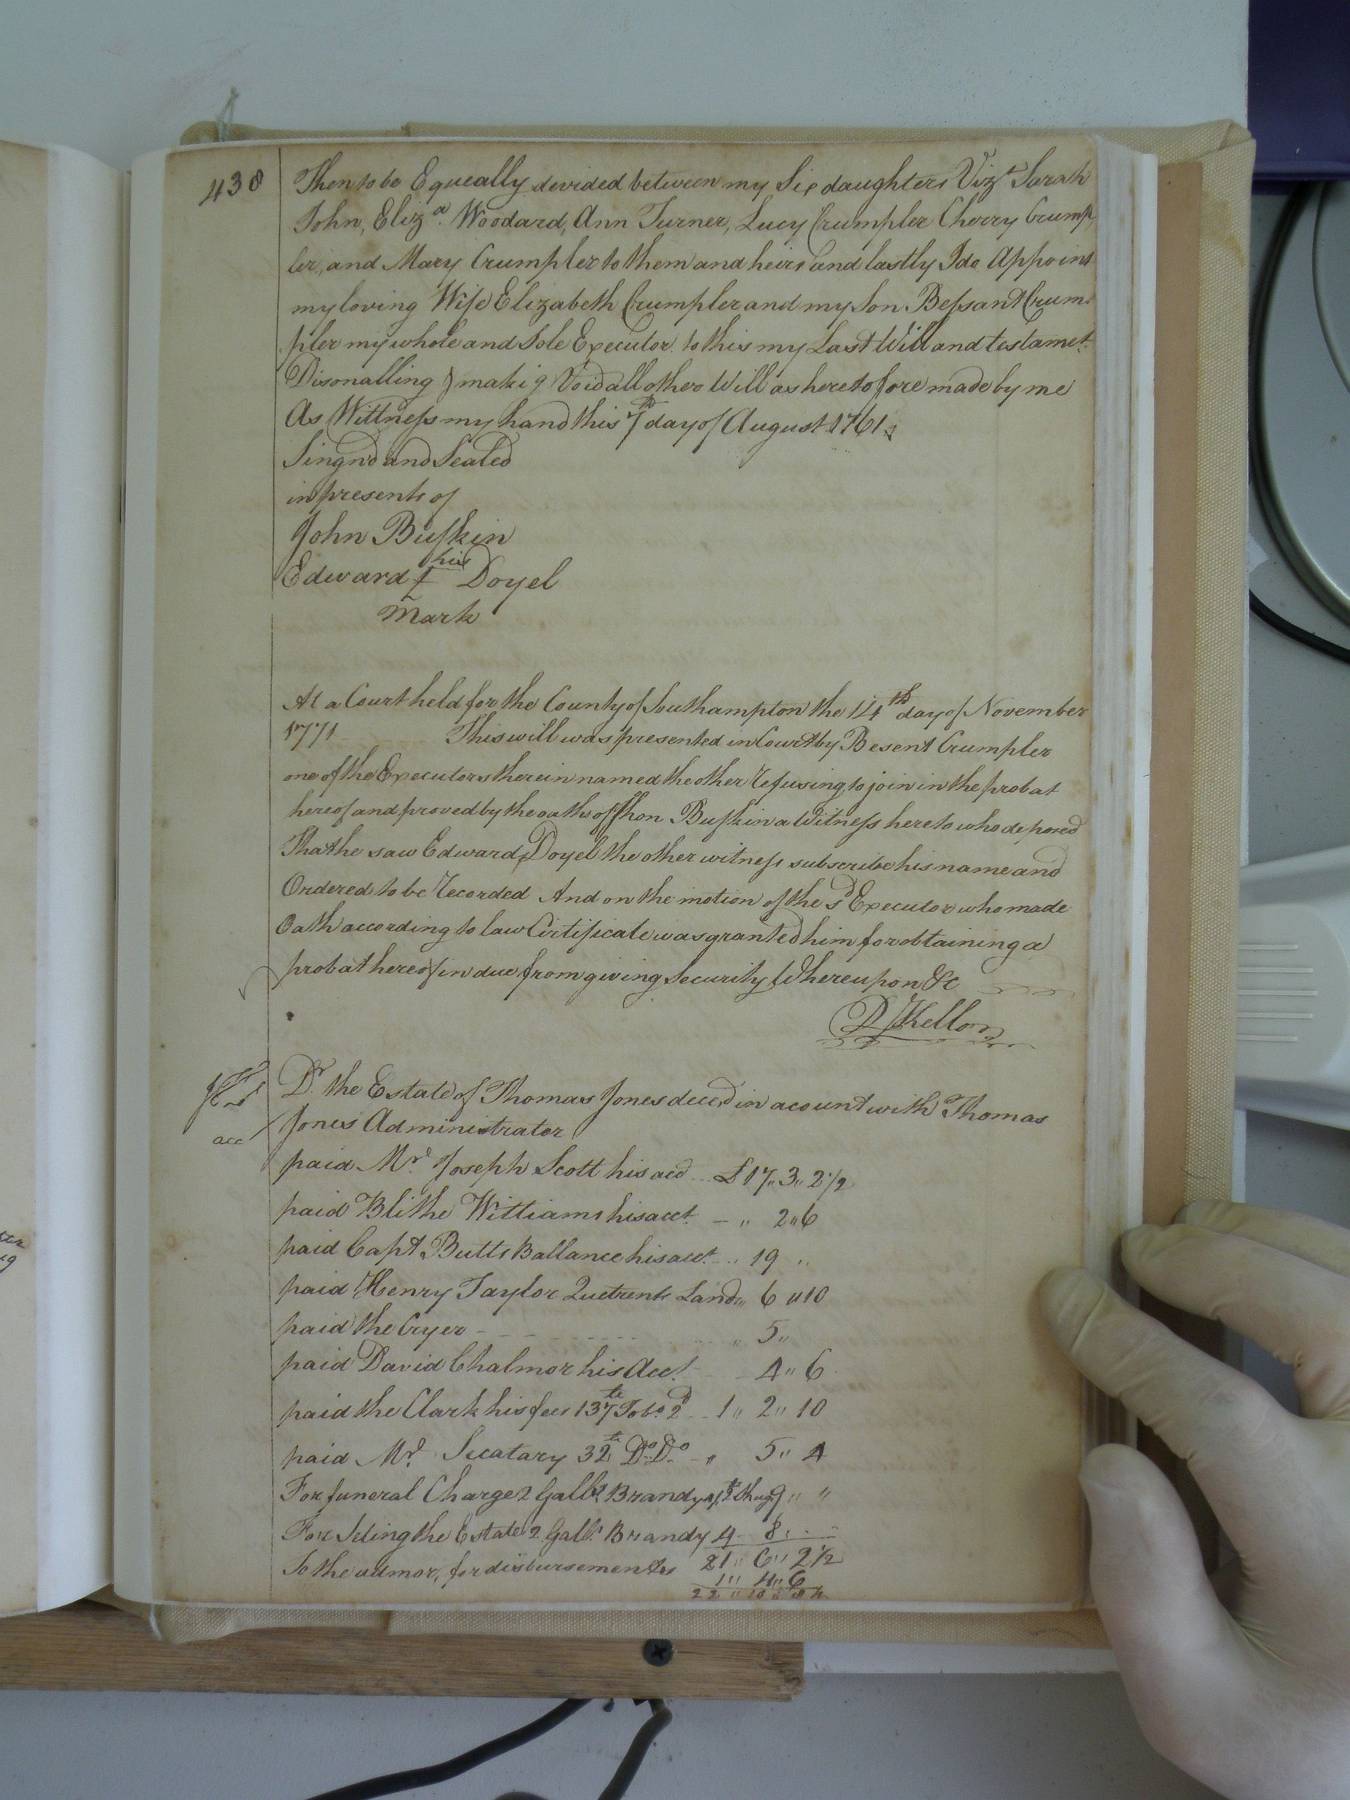 438
Then to be Equeally devided between my Six daughters Vizt Sarah
John, Eliza. Woodard, Ann Turner, Lucy Crumpler Cherry Crump
ler, and Mary Crumpler to them and heirs and lastly I do Appoint
my loving Wife Elizabeth Crumpler and my Son Bessant Crum
pler my whole and Sole Executor to this my Last Will and testamet.
Disonalling & makig Void all other Will as heretofore made by me
As Wittness my hand this 7th day of August 1761
Singnd and Sealed
in presents of
John Buskin
his
Edward Doyel
Mark
At a Court held for the County of Southampton the 14th day of November
1771 This will was presented in Court by Besent Crumpler
one of the Executors therein named the other refusing to join in the probat
hereof and proved by the oath of Jhon Buskin a Witness hereto who deposed
That he saw Edward Doyel the other witness subscribe his name and
Ordered to be Recorded And on the motion of the sd Executor who made
Oath according to law Certificate was granted him for obtaining a
probat hereof in due from giving Security Whereupon &c
Dr. the Estate of Thomas Jones deced in acount with Thomas
acc Jones Administrator
paid Mr. Joseph Scott his acd £17,, 3,, 2 1/2
paid Blithe Williams his acct. - ,, 2,,6
paid Capt. Butts Ballance his acct. 19 ,,
paid Henry Taylor Quetrents Land,, 6 ,,10
paid the Cryer ,, 5,,
paid David Chalmor his Acct 4,, 6
paid the Clark his fees 137 Tobo. 2d 1,, 2,, 10
paid Mr. Secatary 32 Do. Do - ,, 5,, 4
For funeral Charge 2 Galls. Brandy ,, ,,
For Seling the Estate 2 Galls. Brandy 4 8,,
21,, 6,, 2 1/2
To the admor, for disbursements 1,, 4,, 6
22 ,, 10